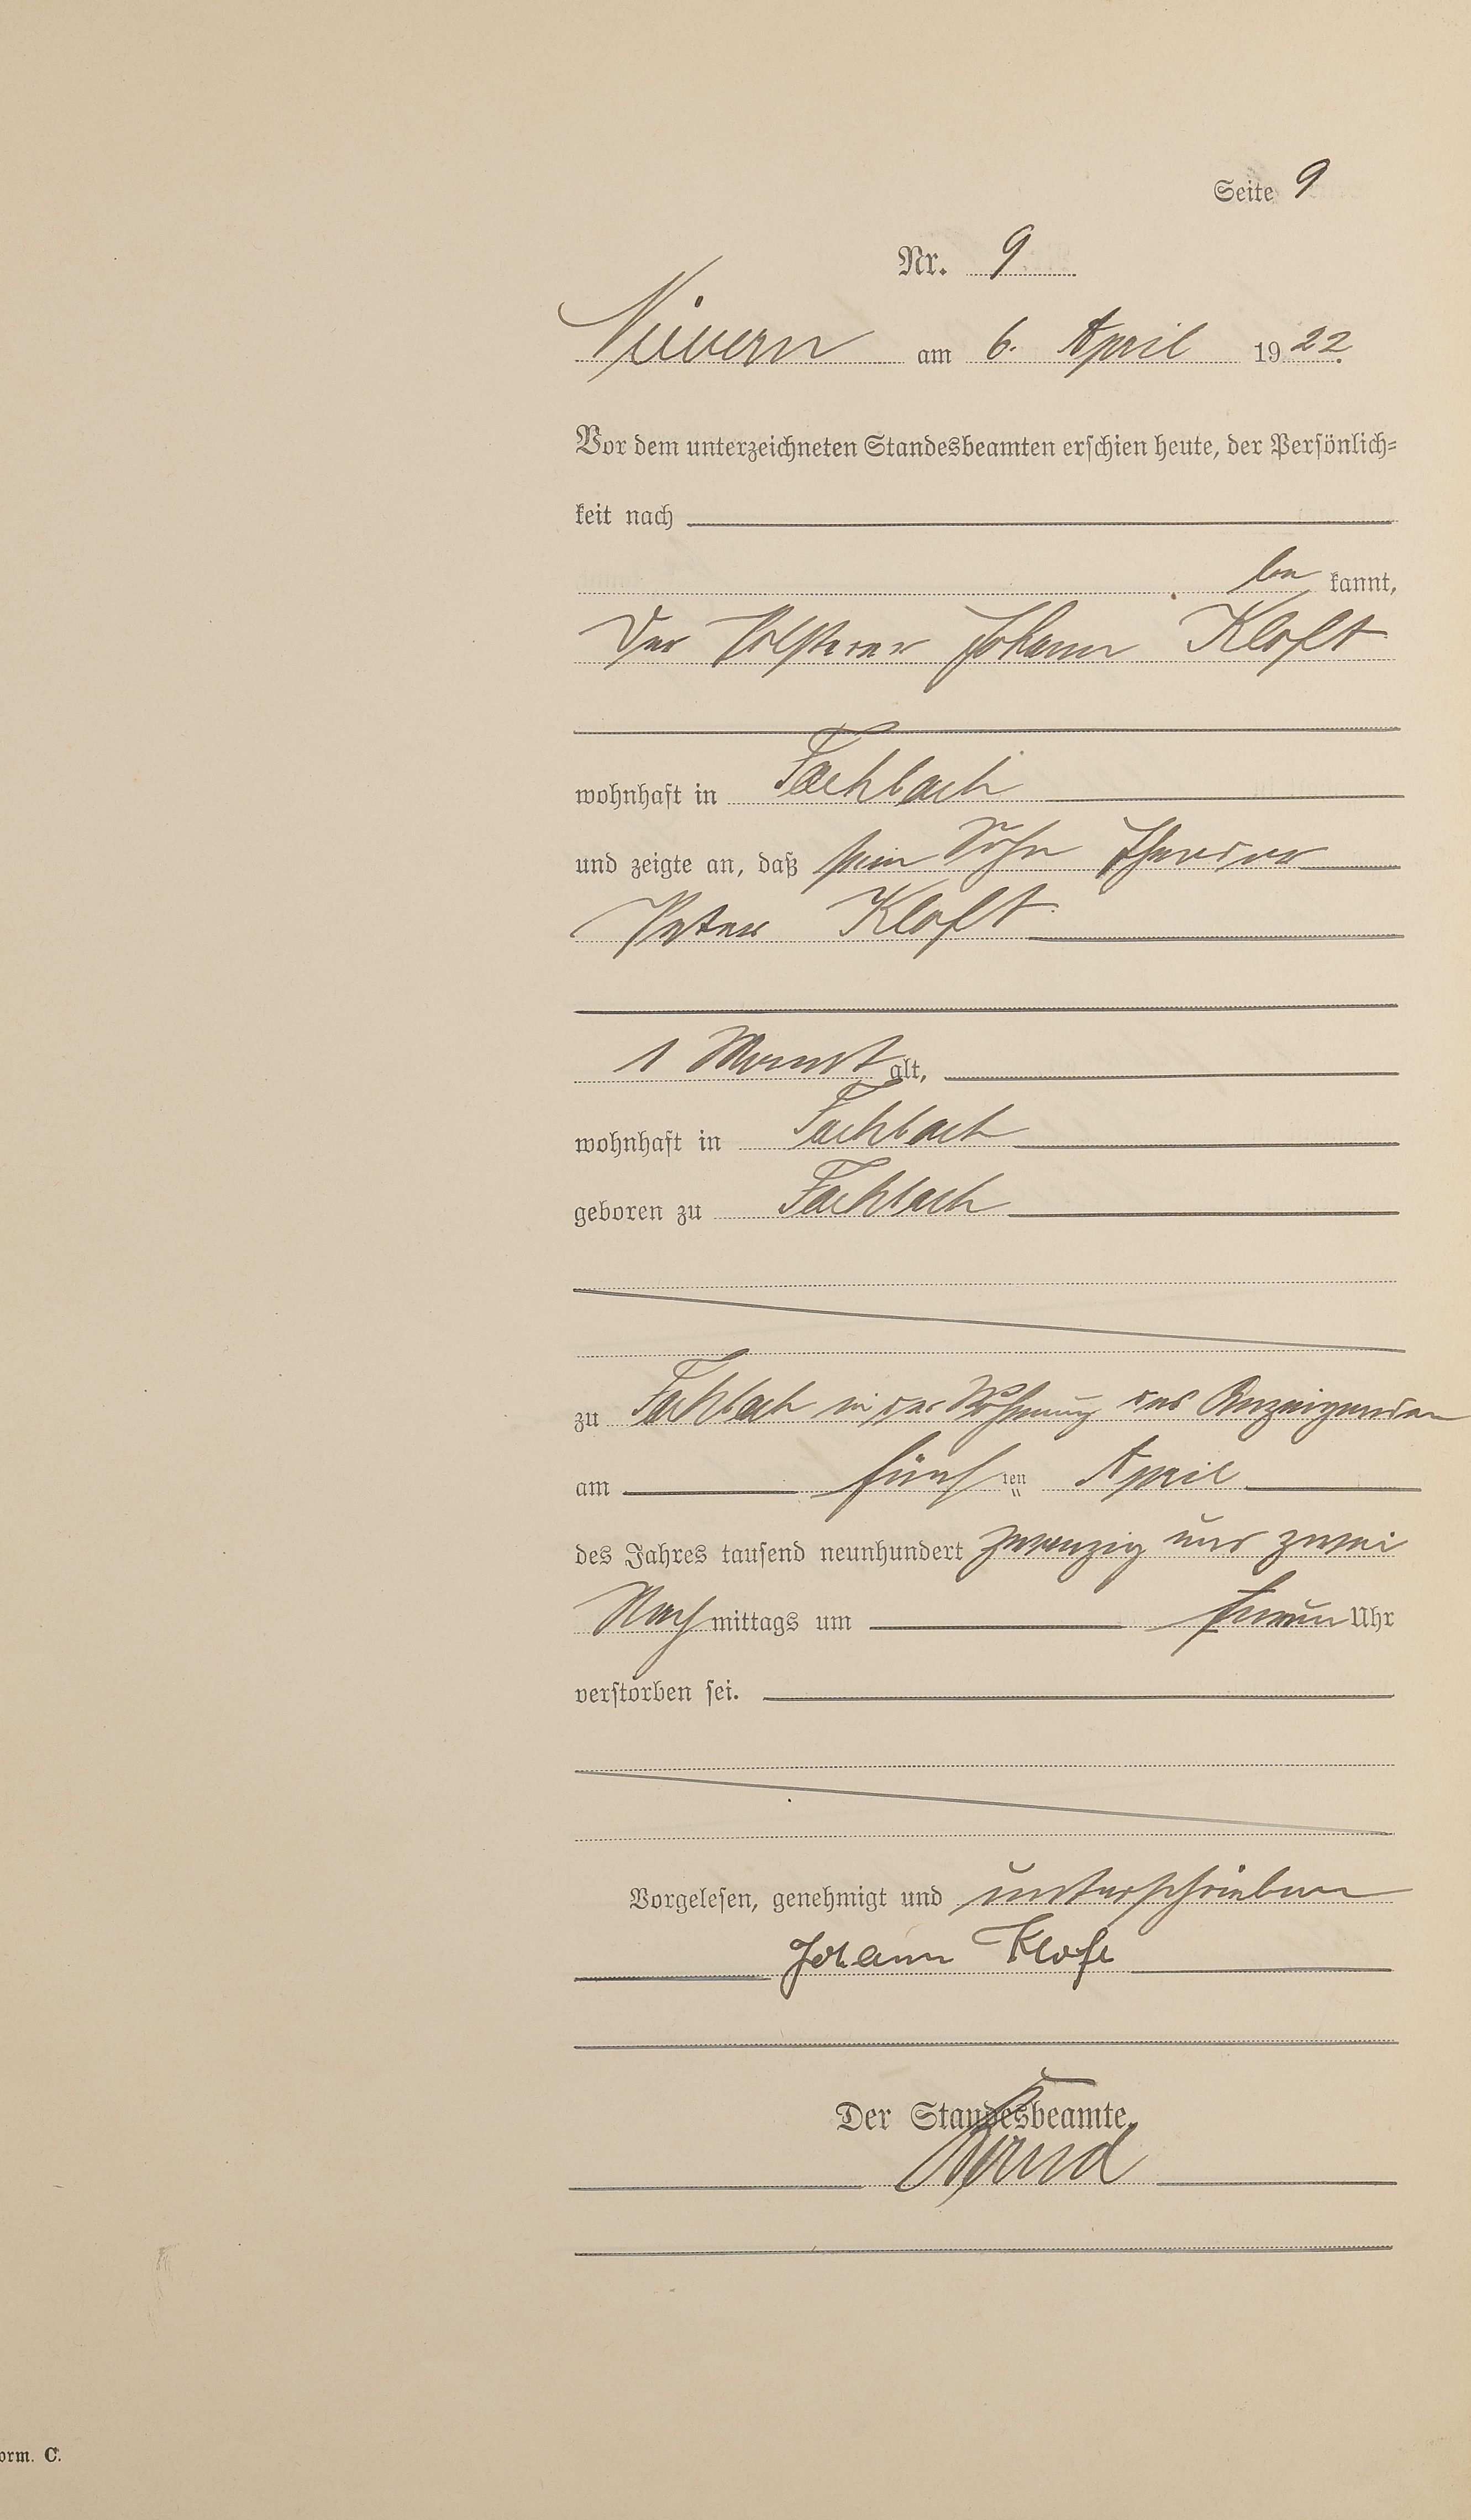 Seite 9
Nr. 9
Nievern am 6. April 1922.
Vor dem unterzeichneten Standesbeamten erschien heute, der Persönlich=
keit nach
be kannt,
Der Polsterer Johann Kloft
wohnhaft in Fachbach
und zeigte an, daß sein Sohn Theodor
Peter Kloft
1 Monat alt,
wohnhaft in Fachbach
geboren zu Fachbach
zu Fachbach in der Wohnung des Anzeigenden
am fünf ten April
des Jahres tausend neunhundert zwanzig und zwei
Nach mittags um Uhr
verstorben sei.
Vorgelesen, genehmigt und unterschrieben
Johann Kloft
Der Standesbeamte.
orm. C.